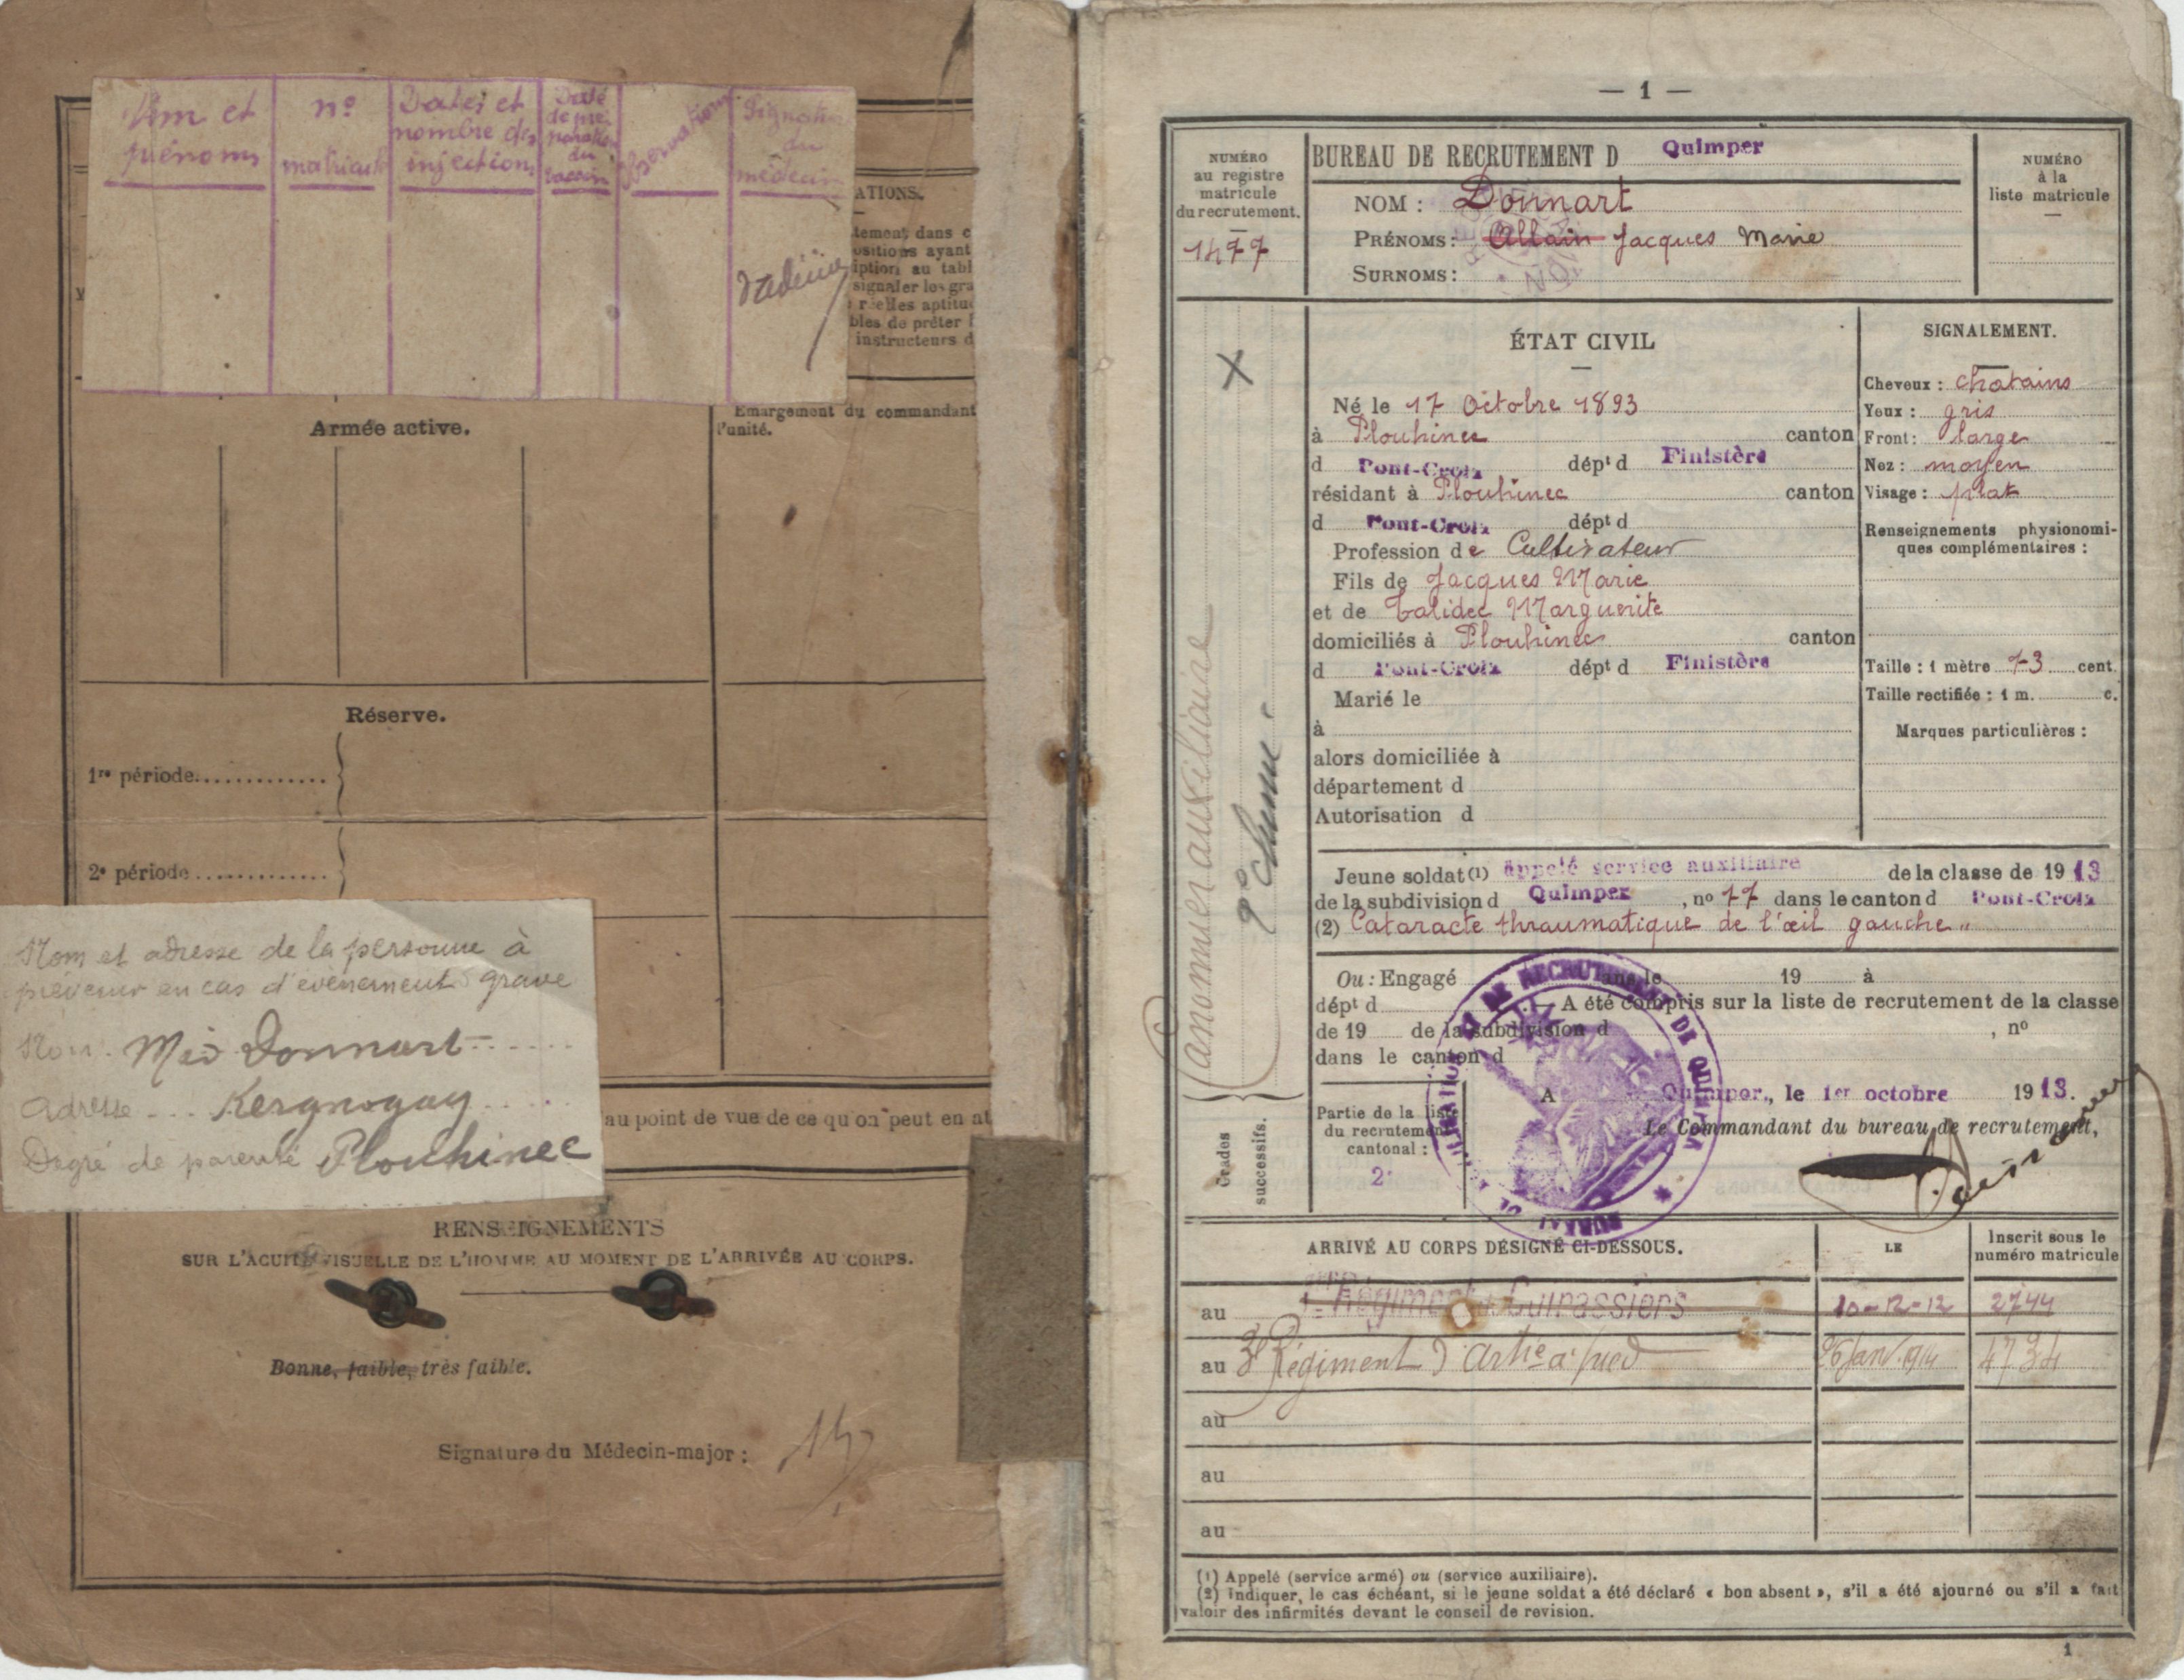 Nom et
prénoms
n°
matricule
Dates et
nombre des
injections
Date
de pré
du
vaccin
Observations
Signature
du
médecin
ATIONS.
tement dans c
ositions ayant
iption au tabl
signaler les gra
réelles aptitu
bles de prêter l
instructeurs d
Armée active.
Emargement du commandant
l'unité.
Réserve.
1re période.............
2e période.............
Nom et adresse de la personne à
prévenir en cas d'évènement grave
Nom. Donnart
Adresse ... Kergnogay
Degré de parenté Plouhinec
au point de vue de ce qu'on peut en at
RENSEIGNEMENTS
SUR L'ACUITÉ VISUELLE DE L'HOMME AU MOMENT DE L'ARRIVÉE AU CORPS.
Bonne, faible, très faible.
Signature du Médecin-major :
— 1 —
NUMÉRO
au registre
matricule
du recrutement.
1477
BUREAU DE RECRUTEMENT D Quimper
NOM : Donnart
PRÉNOMS : Allain Jacques Marie
SURNOMS :
NUMÉRO
à la
liste matricule
Canonnier auxiliaire
2e classe.
Grades
successifs.
ÉTAT CIVIL
Né le 17 Octobre 1893
à Plouhinec canton
d Pont-Croix dépt d Finistère
résidant à Plouhinec canton
d Pont-Croix dépt d
Profession de Cultivateur
Fils de Jacques Marie
et de Talidec Marguerite
domiciliés à Plouhinec canton
d Pont-Croix dépt d Finistère
Marié le
à
alors domiciliée à
département d
Autorisation d
SIGNALEMENT.
Cheveux : chatains
Yeux : gris
Front : large
Nez : moyen
Visage : plat
Renseignements physionomi-
ques complémentaires :
Taille : 1 mètre 73 cent.
Taille rectifiée : 1 m. c.
Marques particulières :
Jeune soldat (1) appelé service auxiliaire de la classe de 1913
de la subdivision d Quimper , no 77 dans le canton d Pont-Croix
(2) Cataracte thraumatique de l'œil gauche "
Ou : Engagé dans le 19 à
dépt d A été compris sur la liste de recrutement de la classe
de 19 de la subdivision d , no
dans le canton d
Partie de la liste
du recrutement
cantonal :
2
A Quimper, le 1er octobre 1913.
Le Commandant du bureau de recrutement,
ARRIVÉ AU CORPS DÉSIGNÉ CI-DESSOUS.
LE
Inscrit sous le
numéro matricule
au 1er Régiment Cuirassiers 10-12-12 2744
au 3e Régiment d'Artie à pied 26 Janv. 1914 4734
au
au
au
(1) Appelé (service armé) ou (service auxiliaire).
(2) Indiquer, le cas échéant, si le jeune soldat a été déclaré « bon absent », s'il a été ajourné ou s'il a fait
valoir des infirmités devant le conseil de revision.
1